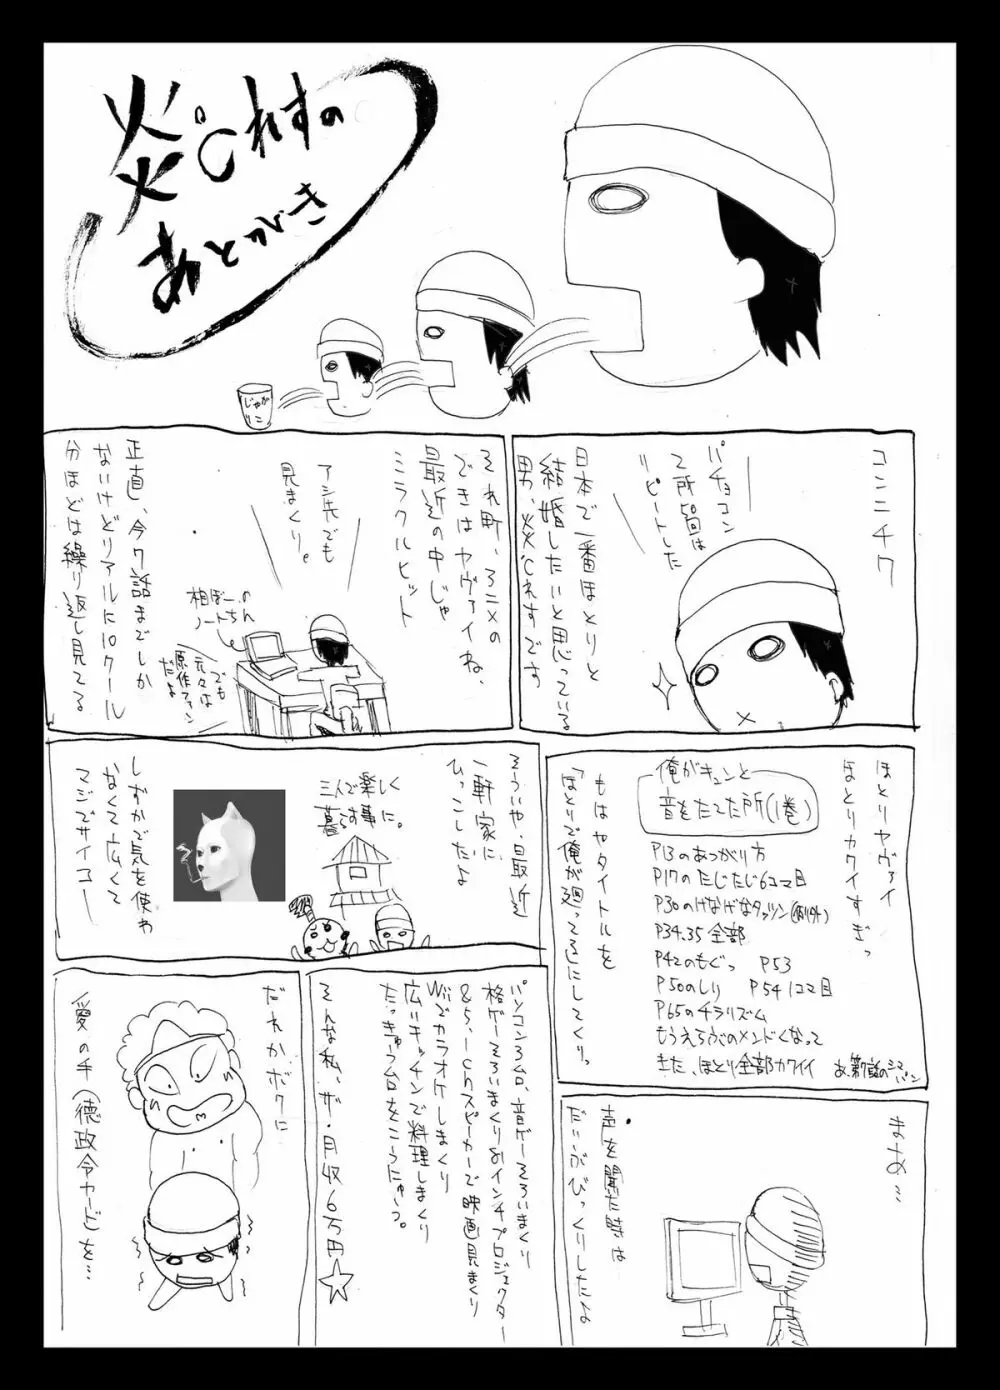 炎℃れすの
あとがき
じゃが
りこ
コンニチワ
パチョコン
2ヶ所50回は
リピートした
日本で一番ほとりと
結婚したいと思っている
男、炎℃れすです
それ町、アニメの
できはヤヴァイね、
最近の中じゃ
ミラクルヒット
アシ先でも
見まくり。
相ぼーちののん
ノート
でも
元々は
原作ファン
だよ
正直、今7話までしか
ないけどリアルに10クール
分ほどは繰り返し見てる
ほとりヤヴァイ
ほとりカワイすぎっ
俺がキュンと
音をたてた所(1巻)
P13のあつがり方
P17のたじたじ6コマ目
P30のけなげなタッツン(例外)
P34.35全部
P42のもぐっ P53
P50のしり P54 1コマ目
P65のチラリズム
もうえらぶのメンドくなって
きた、ほとり全部カワイイ
あ、第1話のシマパン
もはやタイトルを
「ほとりで俺が廻ってる」にしてくりっ
そういや、最近
一軒家に、
ひっこしたよ
三人で楽しく
暮らす事に。
しずかで気を使わ
なくて広くて
マジでサイコー
まあ…
声を聞た時は
だいぶびっくりしたな
パソコン3台、音ゲーそろいまくり
格ゲーそろいまくり80インチプロジェクター
&5.1chスピーカーで映画見まくり
Wiiでカラオケしまくり
広いキッチンで料理しまくり
たっきゅう台をこうにゅう。
そんな私、ザ・月収6万円☆
だれかボクに
愛の手(徳政令カード)を…